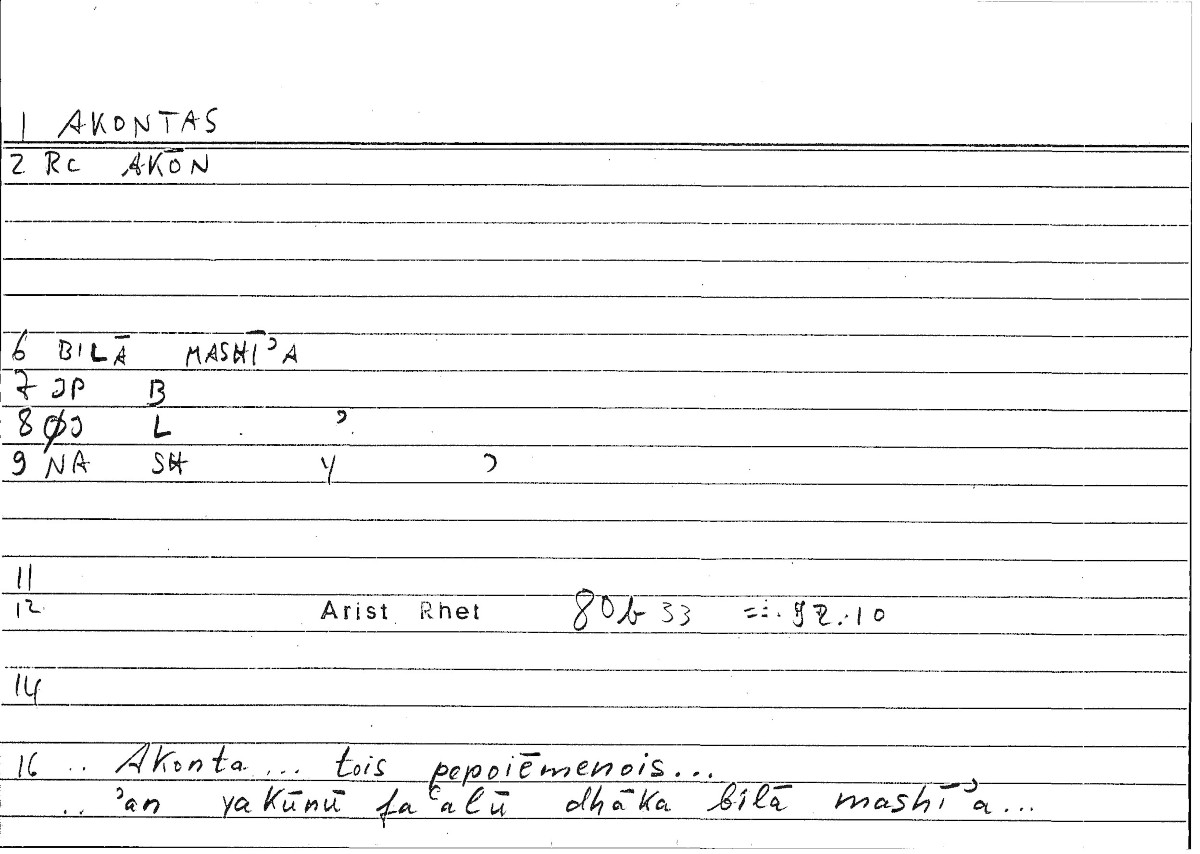 1 AKONTAS
2 Rc AKŌN
6 BILĀ MASHĪʾA
7 JP B
8 ØJ L ʾ
9 NA SH Y ʾ
11
12 Arist Rhet 80b 33 92.10
14
16 .. Akonta... tois pepoiēmenois...
.. ʾan yakūnū faʿalū dhāka bilā mashīʾa...